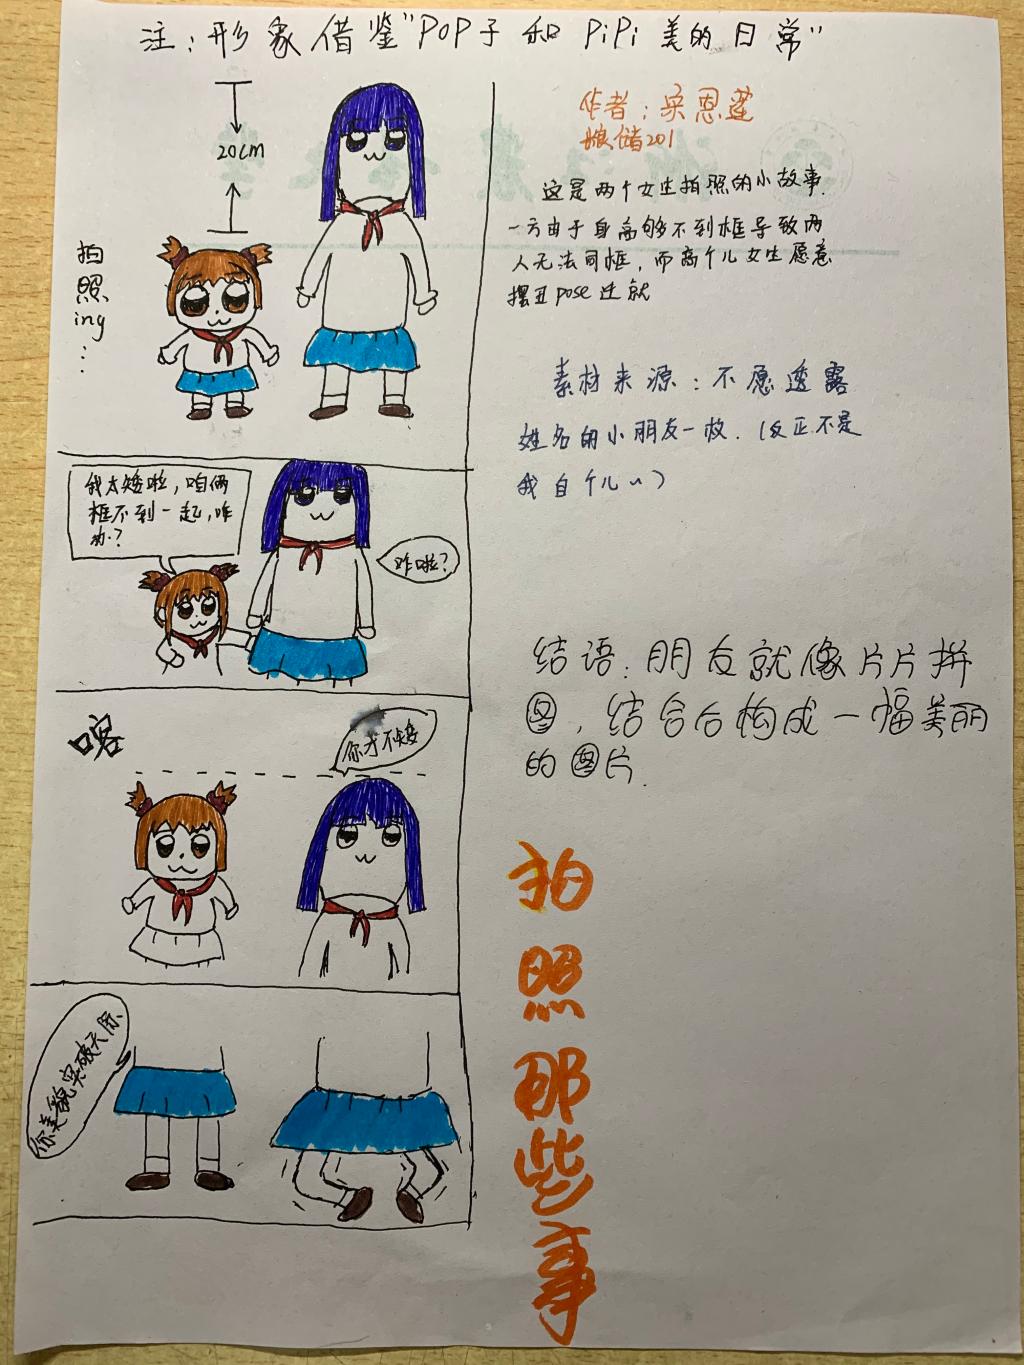 注：形象借鉴"POP子和PiPi美的日常"
20cm
拍
照
ing
...
我太矮啦，咱俩
框不到一起，咋
办？
咋啦？
喀
你才不矮
你美貌突破天际
作者：宋恩莲
粮储201
这是两个女生拍照的小故事.
一方由于身高够不到框导致两
人无法同框，而高个儿女生愿意
摆丑pose迁就
素材来源：不愿透露
姓名的小朋友一枚.（反正不是
我自个儿~）
结语：朋友就像片片拼
图，结合后构成一幅美丽
的图片.
拍
照
那
些
事